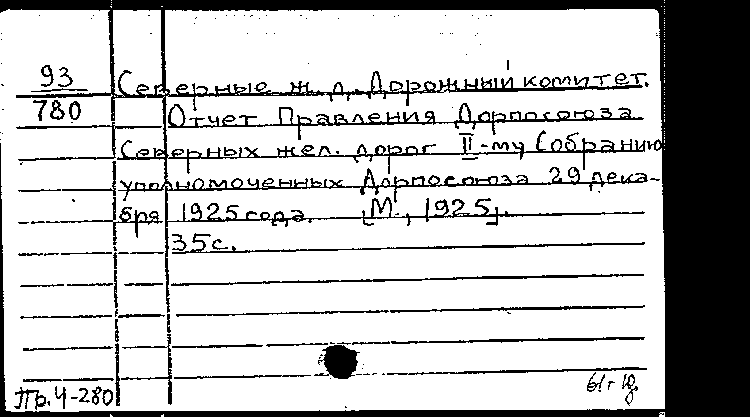 93
780
Северные ж. д. Дорожный комитет.
Отчет Правления Дорпосоюза
Северных жел. дорог II-му Собранию
уполномоченных Дорпосоюза 29 дека-
бря 1925 года. [М., 1925].
35 с.
Пр. Ч-280